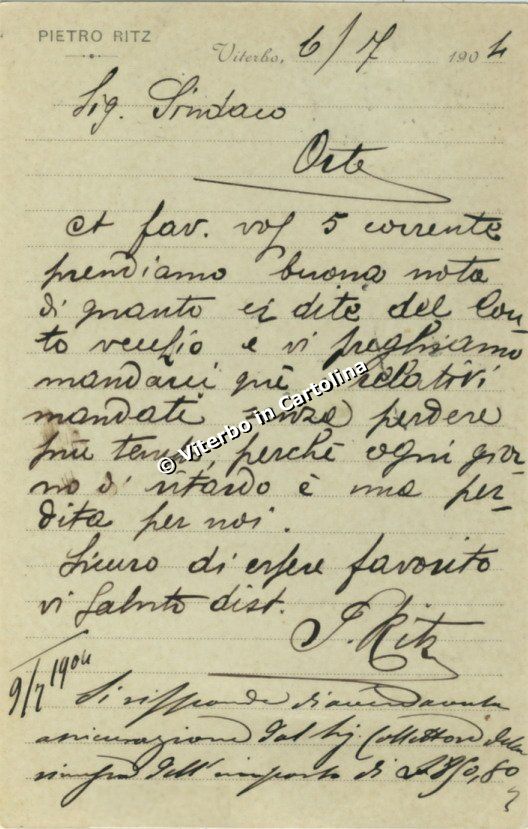 PIETRO RITZ
Viterbo, 6/7 1904
Sig. Sindaco
Orte
A fav. vos 5 corrente
prendiamo buona nota
di quanto ci dite del Con-
to vecchio e vi preghiamo
mandarci qui relativi
mandati senza perdere
più tempo, perchè ogni gior-
no di ritardo è una per-
dita per noi.
Sicuro di essere favorito
vi saluto dist.
P. Ritz
9/7 1904
Si risponde di avere avuta
assicurazione dal Sig. Collettore della
dell' importo di
© Viterbo in Cartolina